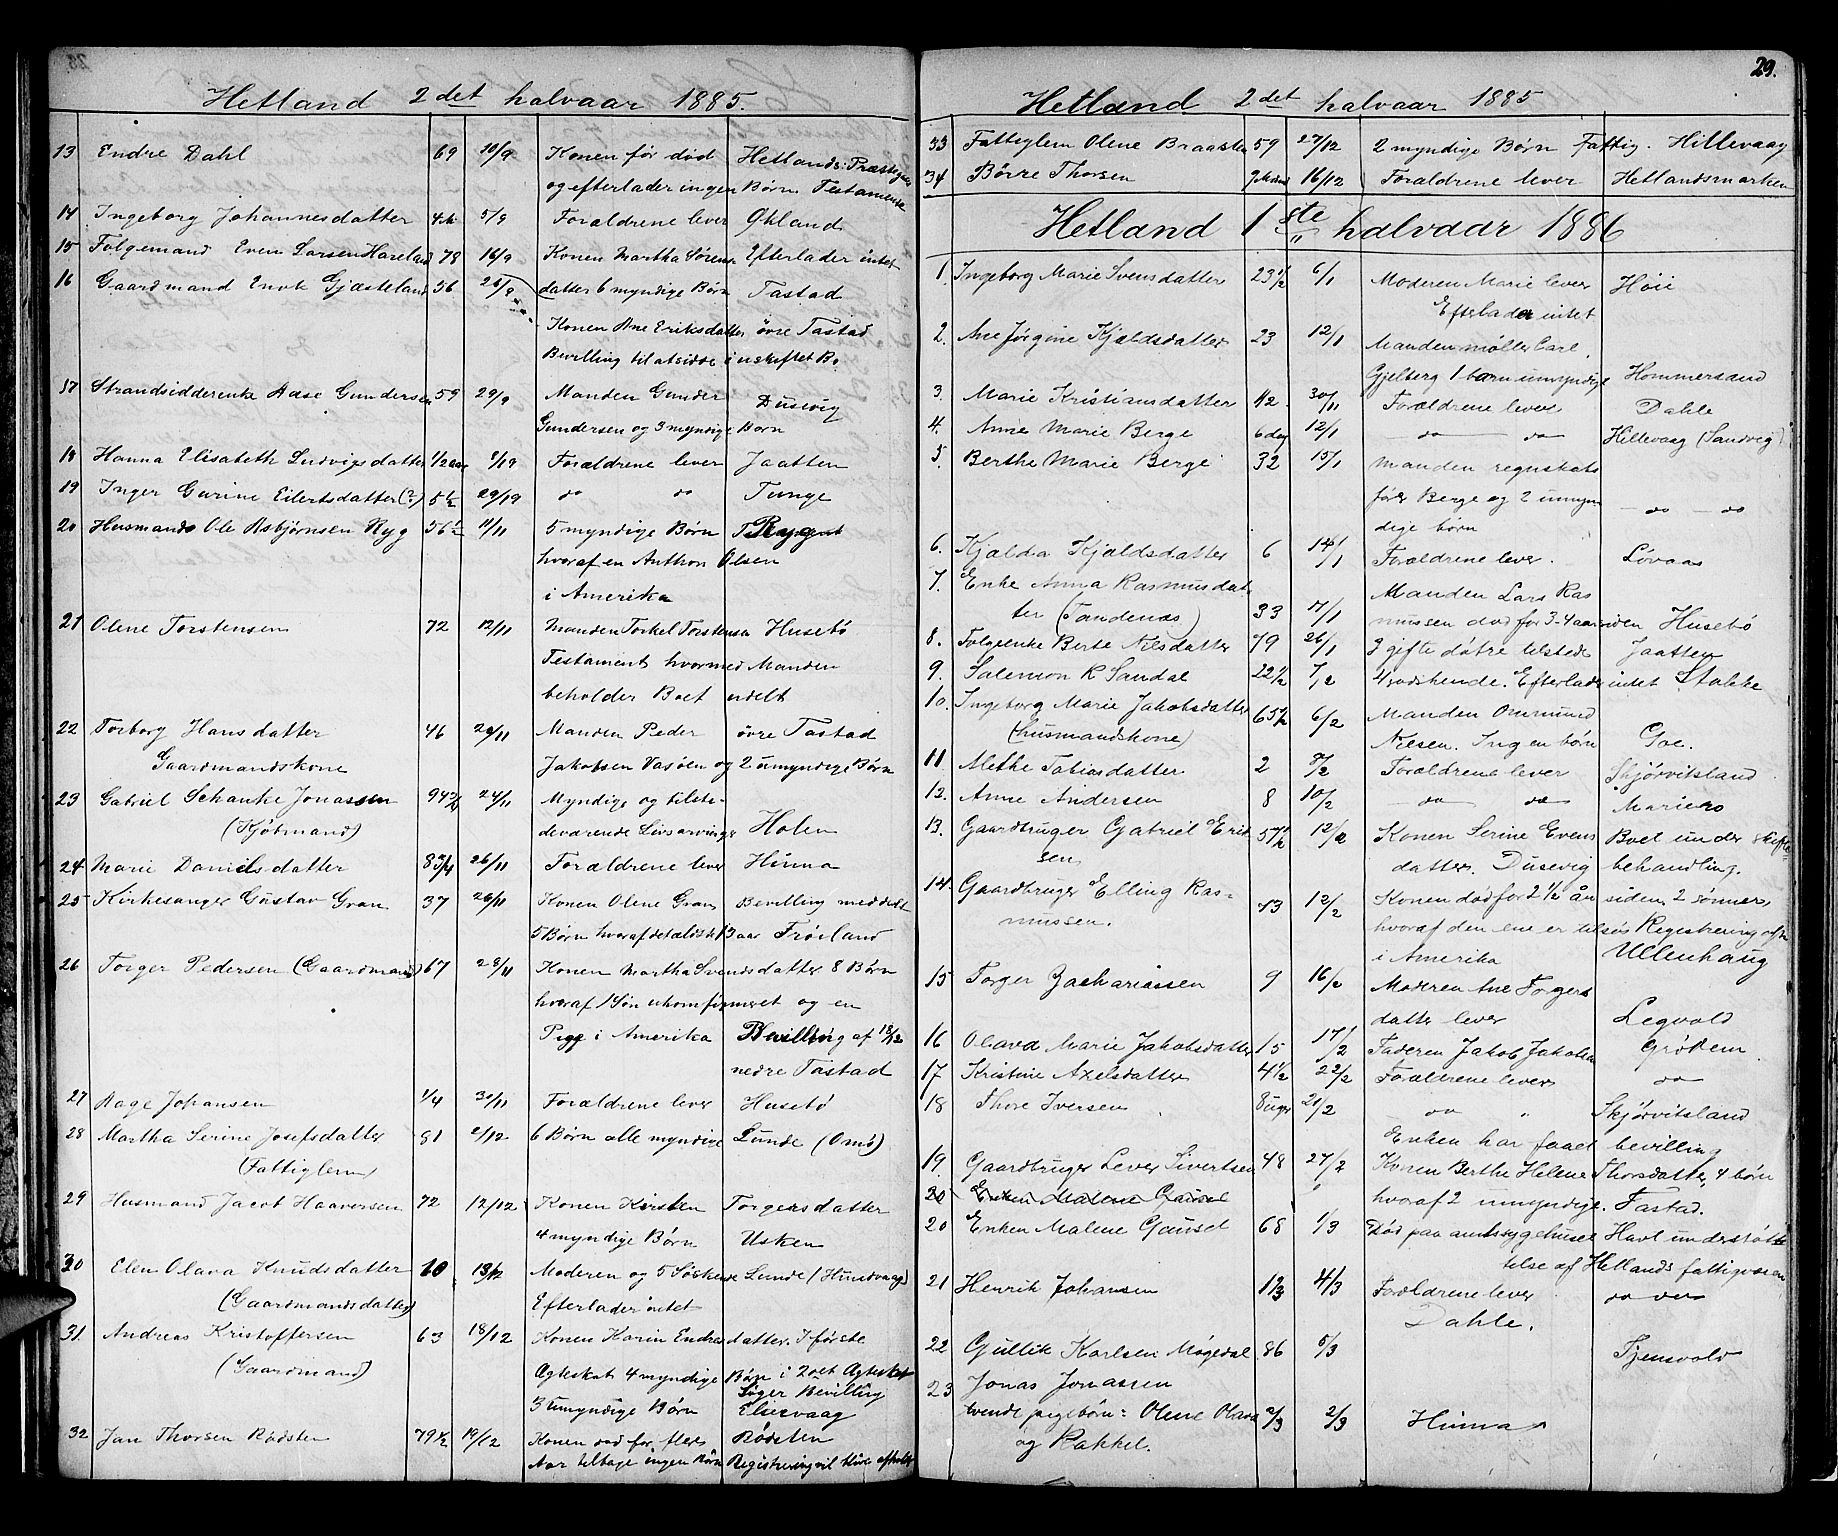 Hetland 2 det halvaar 1885.
13 Endre Dahl 69 10/9 Konen før død Hetlands Præstegaar
og efterlader ingen Børn. Testamente
14 Ingeborg Johannesdatter 5/9 Forældrene lever Økland
15 Følgemand Even Larsen Hareland 78 16/9 Konen Martha Sørens Efterlader intet
16 Gaardmand Enok Gjesteland 56 25/9 datter 6 myndige Børn Tastad
Konen Ane Eriksdatter øvre Tastad
Bevilling til at sidde i uskiftet Bo.
17 Strandsidderenke Aase Gundersen 59 29/9 Manden Gunder Dusevig
Gundersen og 3 myndige Børn
18 Hanna Elisabeth Ludvigsdatter 1/2 aar Forældrene lever Jaatten
19 Inger Gurine Eilertsdatter (?) 5 1/2 do do Tunge
20 Husmand Ole Asbjørnsen Ryg 56 1/2 11/11 5 myndige Børn Ryg
hvoraf en Anthon Olsen
i Amerika
21 Olene Torstensen 72 12/11 Manden Torkel Torstensen Husebø
Testament hvormed Manden
beholder Boet udelt
22 Torborg Hansdatter 46 20/11 Manden Peder øvre Tastad
Gaardmandskone Jakobsen Vasøen og 2 umyndige Børn
23 Gabriel Schanke Jonassen 94 3/4 24/11 Myndige og tilste-
(Kjøbmand) deværende Livsarvinge Holen
24 Marie Danielsdatter 8 3/4 26/11 Forældrene lever Hinna
25 Kirkesanger Gustav Gran 37 26/11 Konen Olene Gran Bevilling meddelt
5 Børn hvoraf det ældste 13 aar Frøiland
26 Torger Pedersen (Gaardmand) 67 28/11 Konen Martha Svendsdatter 8 Børn
hvoraf 1 Søn ukonfirmeret og en
Pige i Amerika Bevilling af 18/12
nedre Tastad
27 Rage Johansen 1/4 30/11 Forældrene lever Husebø
28 Martha Serine Josefsdatter 81 2/12 6 Børn alle myndige Lunde (Omø)
(Fattiglem)
29 Husmand Jacob Haaversen 72 12/12 Konen Kirsten Torgersdatter
4 myndige Børn Usken
30 Elen Olava Knudsdatter 10 13/12 Moderen og 5 Søskende Lunde (Hundvaag)
(Gaardmandsdatter) Efterlader intet
31. Andreas Kristoffersen 63 18/12 Konen Karin Endresdatter. I første
(Gaardmand) Ægteskab 4 myndige Børn i 2det Ægteskab
3 umyndige Børn Søger Bevilling
32 Jan Thorsen Rødsten 79 1/2 19/12 Konen død for flere Rødsten
Aar tilbage ingen Børn Registrering vil blive afholdt
29.
Hetland 2 det halvaar 1885
33 Fattiglem Olene Braasten 59 27/12 2 myndige Børn Fattig. Hillevaag
34 Børre Thorsen 16/12 Forældrene lever Hetlandsmarken
Hetland 1ste halvaar 1886
1. Ingeborg Marie Svensdatter 23 1/2 6/1 Moderen Marie lever Høie
Efterlader intet
2. Ane Jørgine Kjældsdatter 23 12/1 Manden møller Carl
Gjelberg 1 barn umyndige Hommersand
3. Marie Kristiansdatter 1/2 30/11 Forældrene lever Dahle
4. Anne Marie Berge 6 dag 12/1 do do Hillevaag (Sandvig)
5. Berthe Marie Berge 32 15/1 Manden regnskabs
fører Berge og 2 umyn
dige børn do do
6. Kjælda Kjældsdatter 6 14/1 Forældrene lever. Løvaas
7. Enke Anna Rasmusdat Manden Lars Ras
ter (Tandenæs) 33 17/1 mussen død for 3-4 aar siden Husebø
8. Følgeenke Berte Nilsdatter 79 26/1 3 gifte døtre tilstede Jaatten
9. Salemon R Sandal 22 1/2 7/2 Efterlader intet Stokke
10. Ingeborg Marie Jakobsdatter 65 1/2 6/2 Manden Ommund
(husmandskone) Nielsen. Ingen børn Goe.
11 Methe Tobiasdatter 2 Forældrene lever Skjørvitsland
12. Anne Andersen 8 10/2 do do Mariero
13. Gaardbruger Gabriel Erik 57 1/2 12/2 Konen Serine Evens Boet under skifte-
sen datter. Dusevig behandling.
14. Gaardbruger Elling Ras- 73 12/2 Konen død for 2 1/2 år siden 2 sønner,
mussen. hvoraf den ene er tilsøs Registrering afh
i Amerika Ullenhaug
15 Torger Zachariassen 9 16/2 Moderen Ane Torgers
datter lever Legvold
16 Olava Marie Jakobsdatter 15 17/2 Faderen Jakob Jakobsen Grødem
17 Kristine Axelsdatter 4 1/2 22/2 Forældrene lever do
18 Thore Iversen 8 uger 21/2 do " Skjørvitsland
Enken har faaet bevilling
19 Gaardbruger Lever Sivertsen 48 27/2 Konen Berthe Helene Thorsdatter, 4 børn
20 Enken Malene Gausel hvoraf 2 umyndige. Tastad.
20 Enken Malene Gausel 68 1/3 Død paa amtssygehuset Havt understøt
telse af Hetlands fattigvæsen
21 Henrik Johansen 1 1/3 4/3 Forældrene lever
Dahle.
22 Gullik Karlsen Møgedal 86 5/3 Tjensvold
23 Jonas Jonassen
tvende pigebørn: Olene Olava 2/3 2/3 Hinna
og Rakkel.